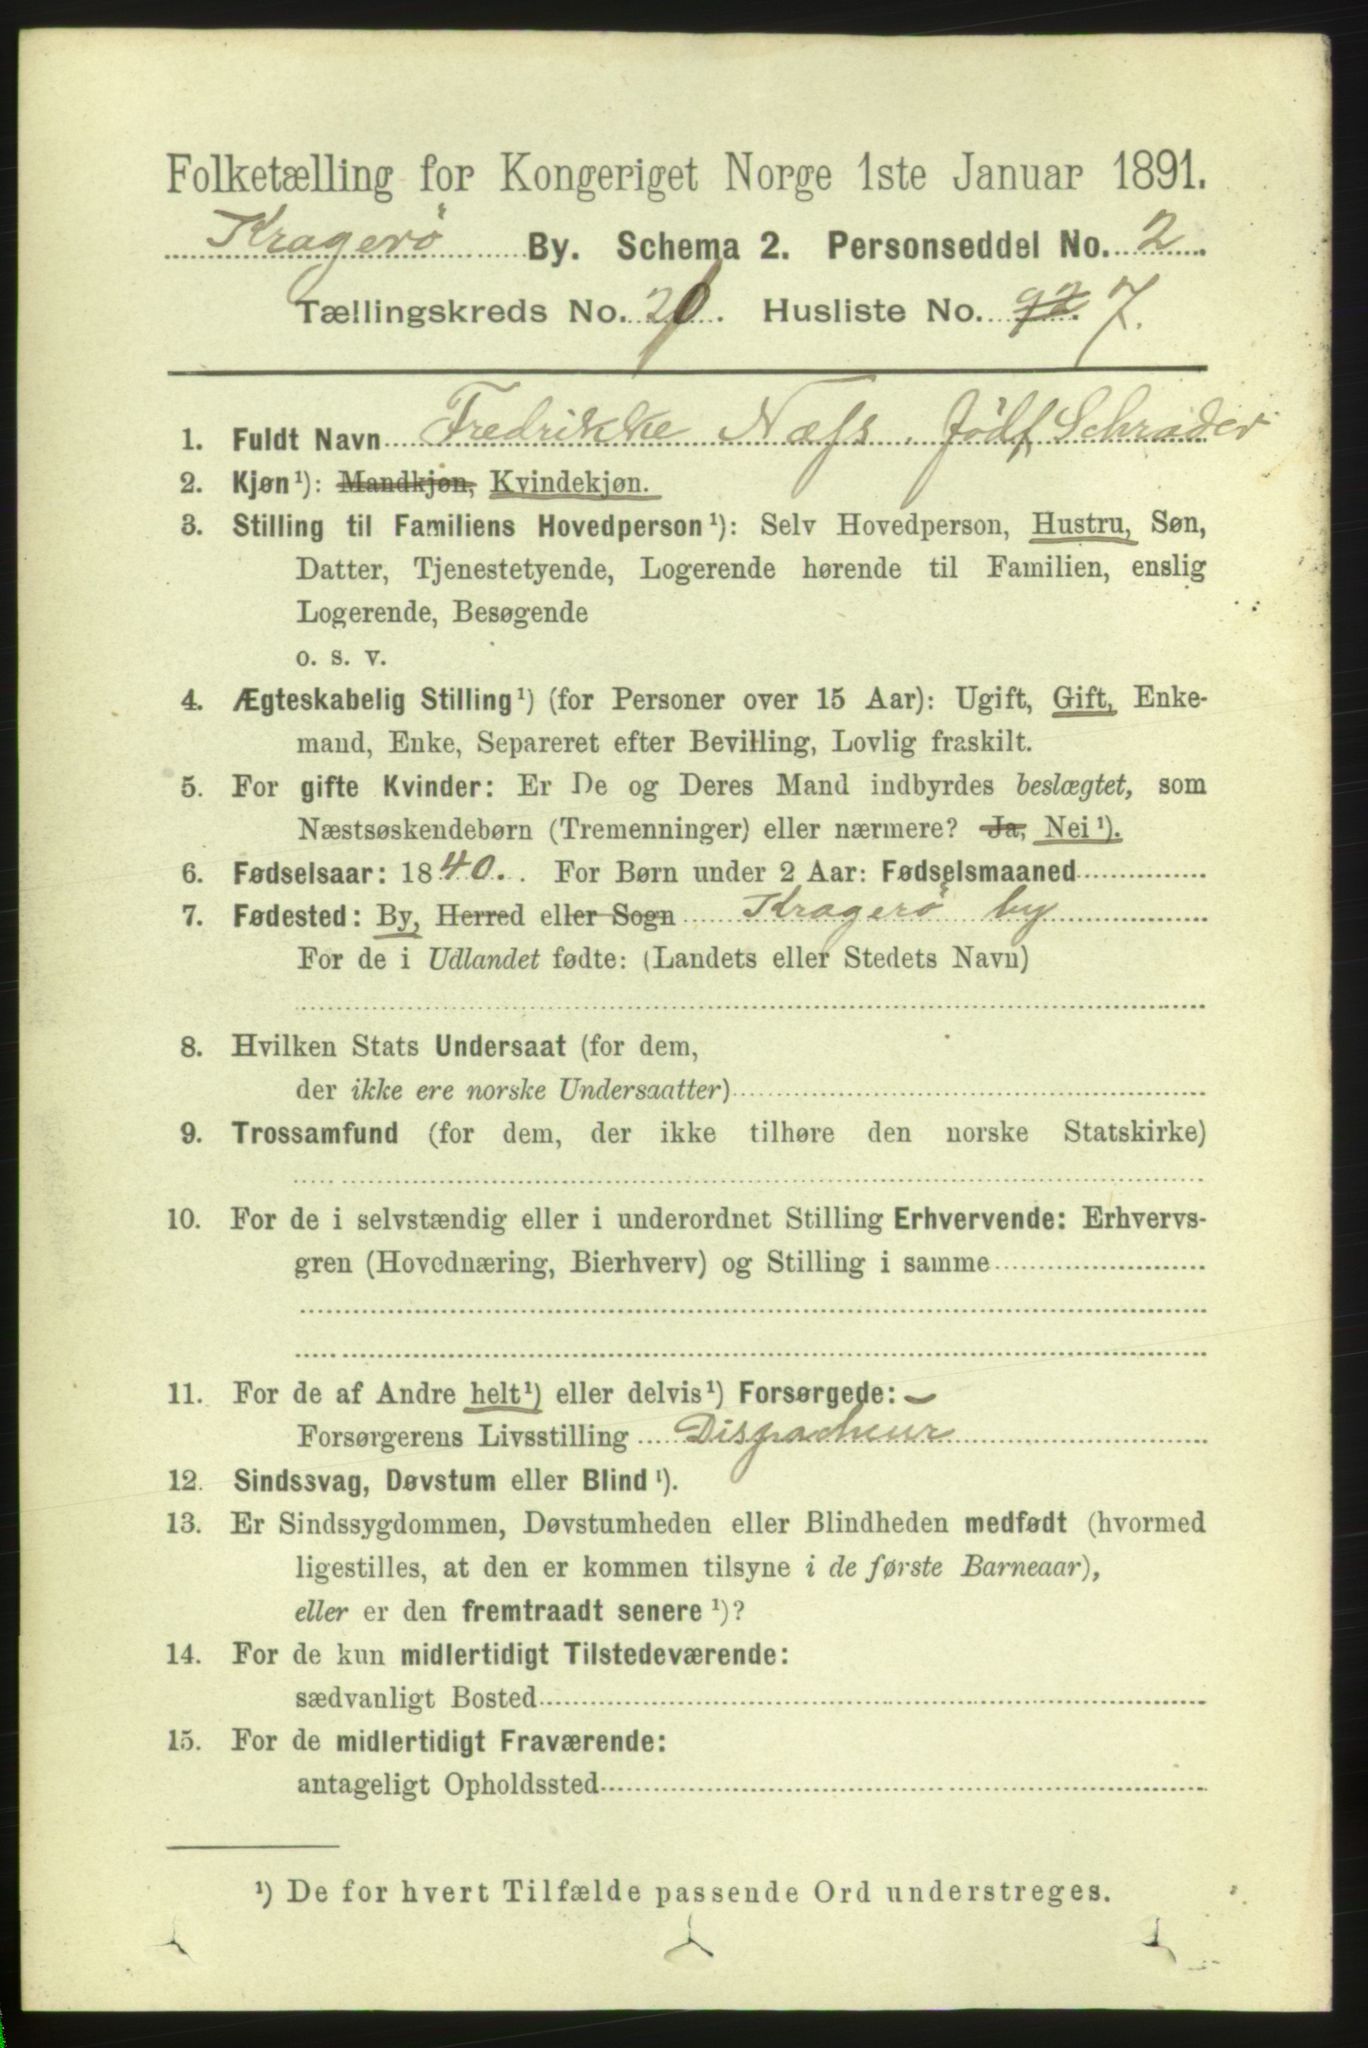 Folketælling for Kongeriget Norge 1ste Januar 1891.
Kragerø By. Schema 2. Personseddel No. 2.
Tællingskreds No. 2. Husliste No. 92. 7.
1. Fuldt Navn Fredrikke Næss, født Schrader
2. Kjøn¹): Mandkjøn, Kvindekjøn.
3. Stilling til Familiens Hovedperson¹): Selv Hovedperson, Hustru, Søn,
Datter, Tjenestetyende, Logerende hørende til Familien, enslig
Logerende, Besøgende
o. s. v.
4. Ægteskabelig Stilling¹) (for Personer over 15 Aar): Ugift, Gift, Enke-
mand, Enke, Separeret efter Bevilling, Lovlig fraskilt.
5. For gifte Kvinder: Er De og Deres Mand indbyrdes beslægtet, som
Næstsøskendebørn (Tremenninger) eller nærmere? Ja, Nei¹).
6. Fødselsaar: 1840. For Børn under 2 Aar: Fødselsmaaned
7. Fødested: By, Herred eller Sogn Kragerø by
For de i Udlandet fødte: (Landets eller Stedets Navn)
8. Hvilken Stats Undersaat (for dem,
der ikke ere norske Undersaatter)
9. Trossamfund (for dem, der ikke tilhøre den norske Statskirke)
10. For de i selvstændig eller i underordnet Stilling Erhvervende: Erhvervs-
gren (Hovednæring, Bierhverv) og Stilling i samme
11. For de af Andre helt¹) eller delvis¹) Forsørgede:
Forsørgerens Livsstilling Dispacheur
12. Sindssvag, Døvstum eller Blind¹).
13. Er Sindssygdommen, Døvstumheden eller Blindheden medfødt (hvormed
ligestilles, at den er kommen tilsyne i de første Barneaar),
eller er den fremtraadt senere¹)?
14. For de kun midlertidigt Tilstedeværende:
sædvanligt Bosted
15. For de midlertidigt Fraværende:
antageligt Opholdssted
¹) De for hvert Tilfælde passende Ord understreges.